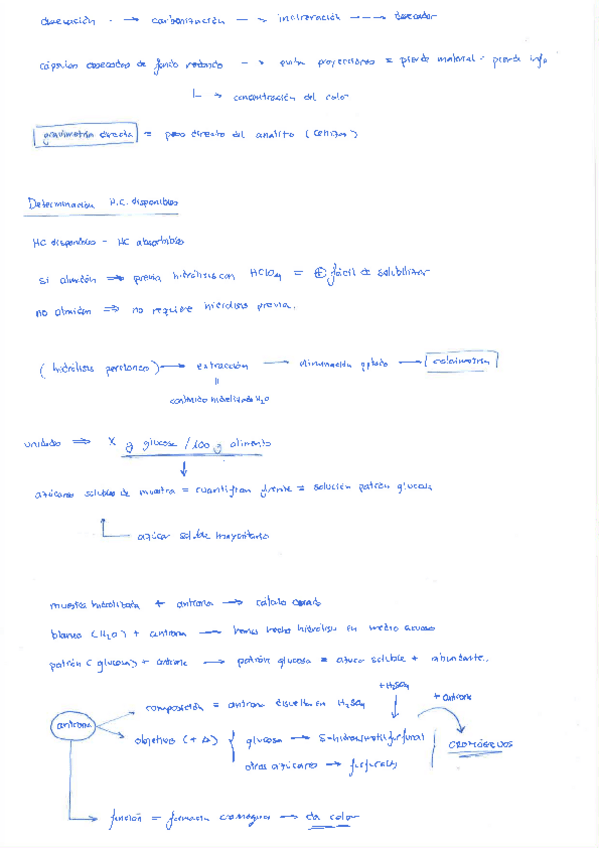 desecación → carbonización → incineración → desecador
cápsulas desecadas de fondo redondo → evitar proyecciones = pierde material = pierde info
↳ → concentración del calor
gravimetría directa = peso directo del analito (cenizas)
Determinación H.C. disponibles
HC disponibles - HC absorbibles
si almidón ⇒ previa hidrólisis con HClO4 = ⊕ fácil de solubilizar
no almidón ⇒ no requiere hidrólisis previa.
(hidrólisis perclórico) → extracción → eliminación → colorimetría
H2O
unidades ⇒ X g glucosa / 100 g alimento
azúcares solubles de muestra = cuantifican frente = solución patrón glucosa
azúcar soluble mayoritario
muestra hidrolizada + antrona →
blanco (H2O) + antrona → hemos hecho hidrólisis en medio acuoso
patrón (glucosa) + antrona → patrón glucosa = azúcar soluble + abundante.
+ H2SO4 + antrona
composición = antrona disuelta en H2SO4
antrona
objetivo (+ Δ) { glucosa → 5-hidroximetilfurfural
otras azúcares → furfurales
CROMÓGENOS
función = formación cromógeno → da color